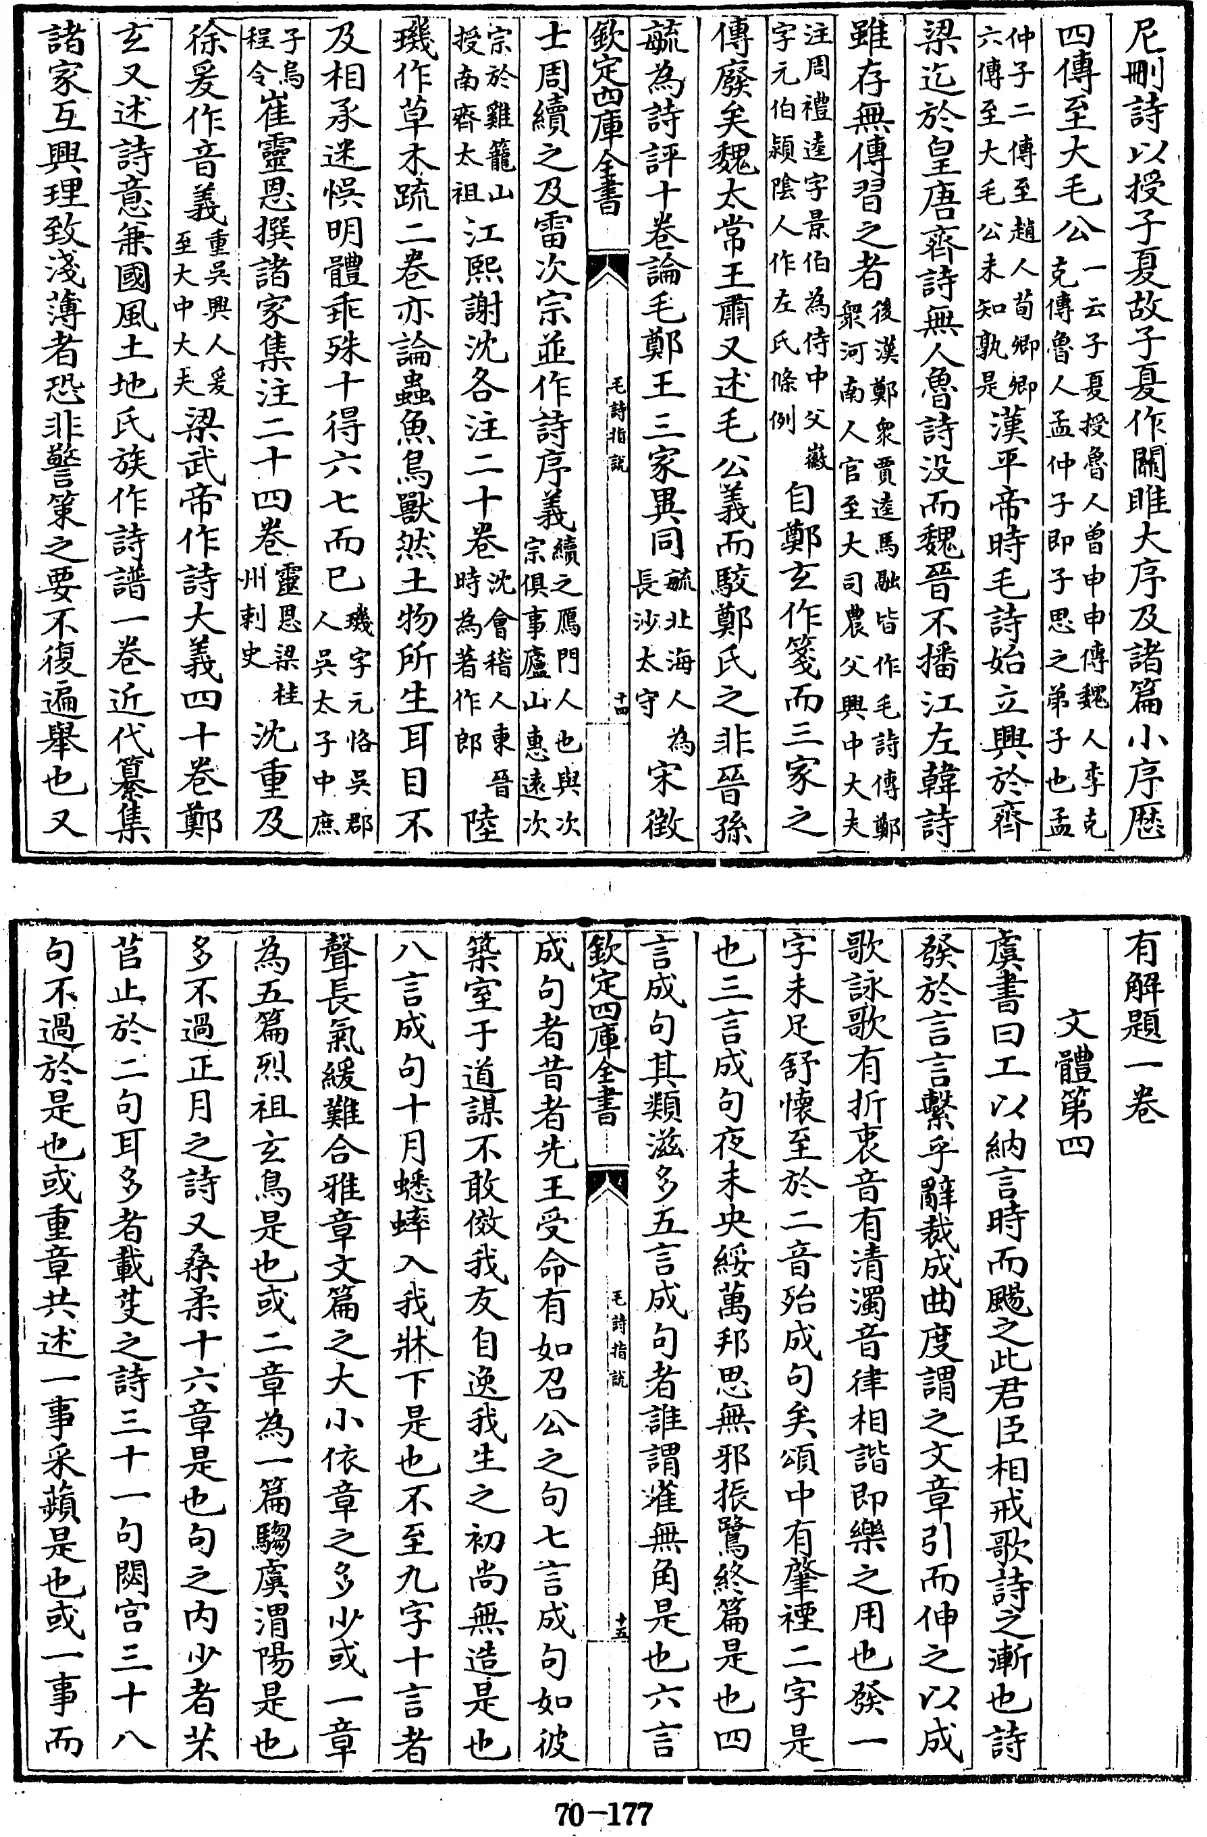 尼刪詩以授子夏故子夏作關雎大序及諸篇小序歴
四傳至大毛公一云子夏授魯人曽申申傳魏人李克克傳魯人孟仲子即子思之弟子也孟
仲子二傳至趙人荀卿卿六傳至大毛公未知孰是漢平帝時毛詩始立興於齊
梁迄於皇唐齊詩無人魯詩没而魏晉不播江左韓詩
雖存無傳習之者後漢鄭衆賈逵馬融皆作毛詩傳鄭衆河南人官至大司農父興中大夫
注周禮逵字景伯為侍中父徽字元伯潁陰人作左氏條例自鄭玄作箋而三家之
傳廢矣魏太常王肅又述毛公義而駮鄭氏之非晉孫
毓為詩評十卷論毛鄭王三家異同毓北海人為長沙太守宋徴
欽定四庫全書
毛詩指說
十四
士周續之及雷次宗並作詩序義續之鴈門人也與次宗俱事廬山惠遠次
宗於雞籠山授南齊太祖江熙謝沈各注二十卷沈會稽人東晉時為著作郎陸
璣作草木疏二卷亦論蟲魚鳥獸然土物所生耳目不
及相承迷悞明體乖殊十得六七而已璣字元恪吳郡人吳太子中庶
子烏程令崔靈恩撰諸家集注二十四卷靈恩梁桂州刺史沈重及
徐爰作音義重吳興人爰至大中大夫梁武帝作詩大義四十卷鄭
玄又述詩意兼國風土地氏族作詩譜一卷近代纂集
諸家互興理致淺薄者恐非警策之要不復遍舉也又
有解題一卷
文體第四
虞書曰工以納言時而颺之此君臣相戒歌詩之漸也詩
發於言言繫乎辭裁成曲度謂之文章引而伸之以成
歌詠歌有折衷音有清濁音律相諧即樂之用也發一
字未足舒懷至於二音殆成句矣頌中有肇禋二字是
也三言成句夜未央綏萬邦思無邪振鷺終篇是也四
言成句其類滋多五言成句者誰謂雀無角是也六言
欽定四庫全書
毛詩指說
十五
成句者昔者先王受命有如召公之句七言成句如彼
築室于道謀不敢傚我友自逸我生之初尚無造是也
八言成句十月蟋蟀入我牀下是也不至九字十言者
聲長氣緩難合雅章文篇之大小依章之多少或一章
為五篇烈祖玄鳥是也或二章為一篇騶虞渭陽是也
多不過正月之詩又桑柔十六章是也句之内少者芣
苢止於二句耳多者載芟之詩三十一句閟宫三十八
句不過於是也或重章共述一事采蘋是也或一事而
70-177